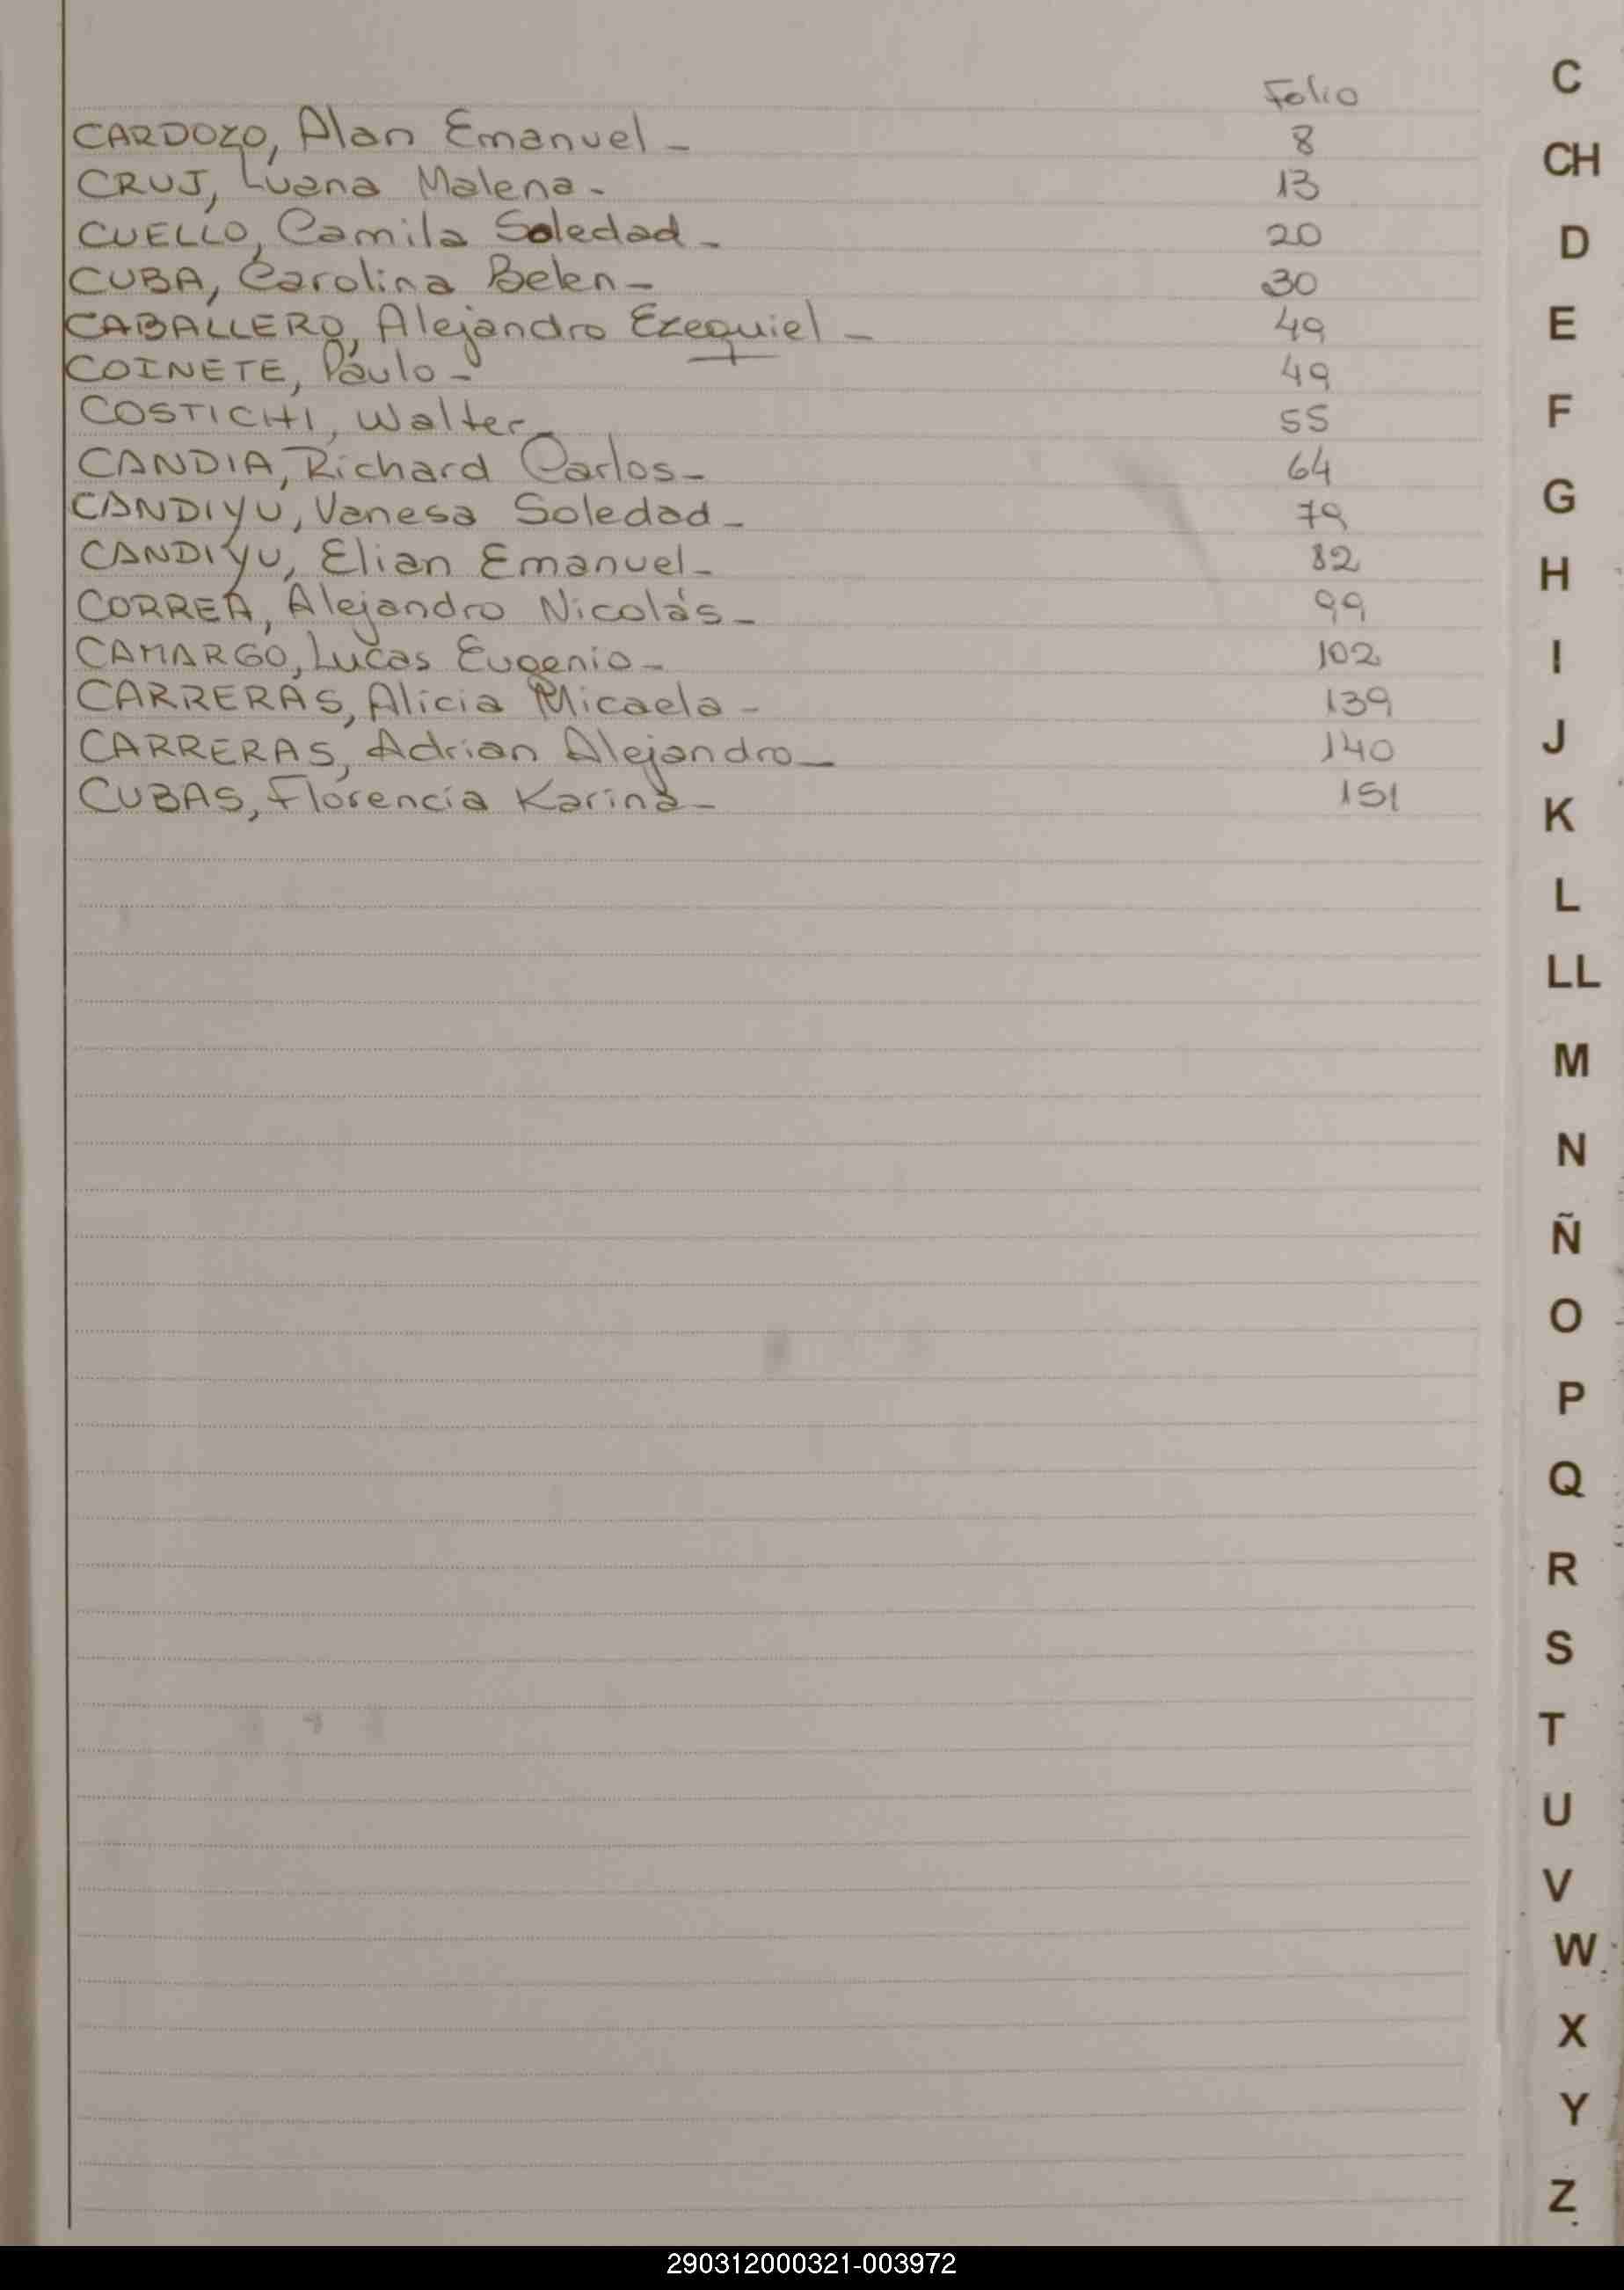 Folio
CARDOZO, Alan Emanuel - 8
CRUJ, Luana Malena - 13
CUELLO, Camila Soledad - 20
CUBA, Carolina Belen - 30
CABALLERO, Alejandro Ezequiel - 49
COINETE, Paulo - 49
COSTICHI, Walter - 55
CANDIA, Richard Carlos - 64
CANDIYU, Vanesa Soledad - 79
CANDIYU, Elian Emanuel - 82
CORREA, Alejandro Nicolás - 99
CAMARGO, Lucas Eugenio - 102
CARRERAS, Alicia Micaela - 139
CARRERAS, Adrian Alejandro - 140
CUBAS, Florencia Karina - 151
C
CH
D
E
F
G
H
I
J
K
L
LL
M
N
Ñ
O
P
Q
R
S
T
U
V
W
X
Y
Z
290312000321-003972